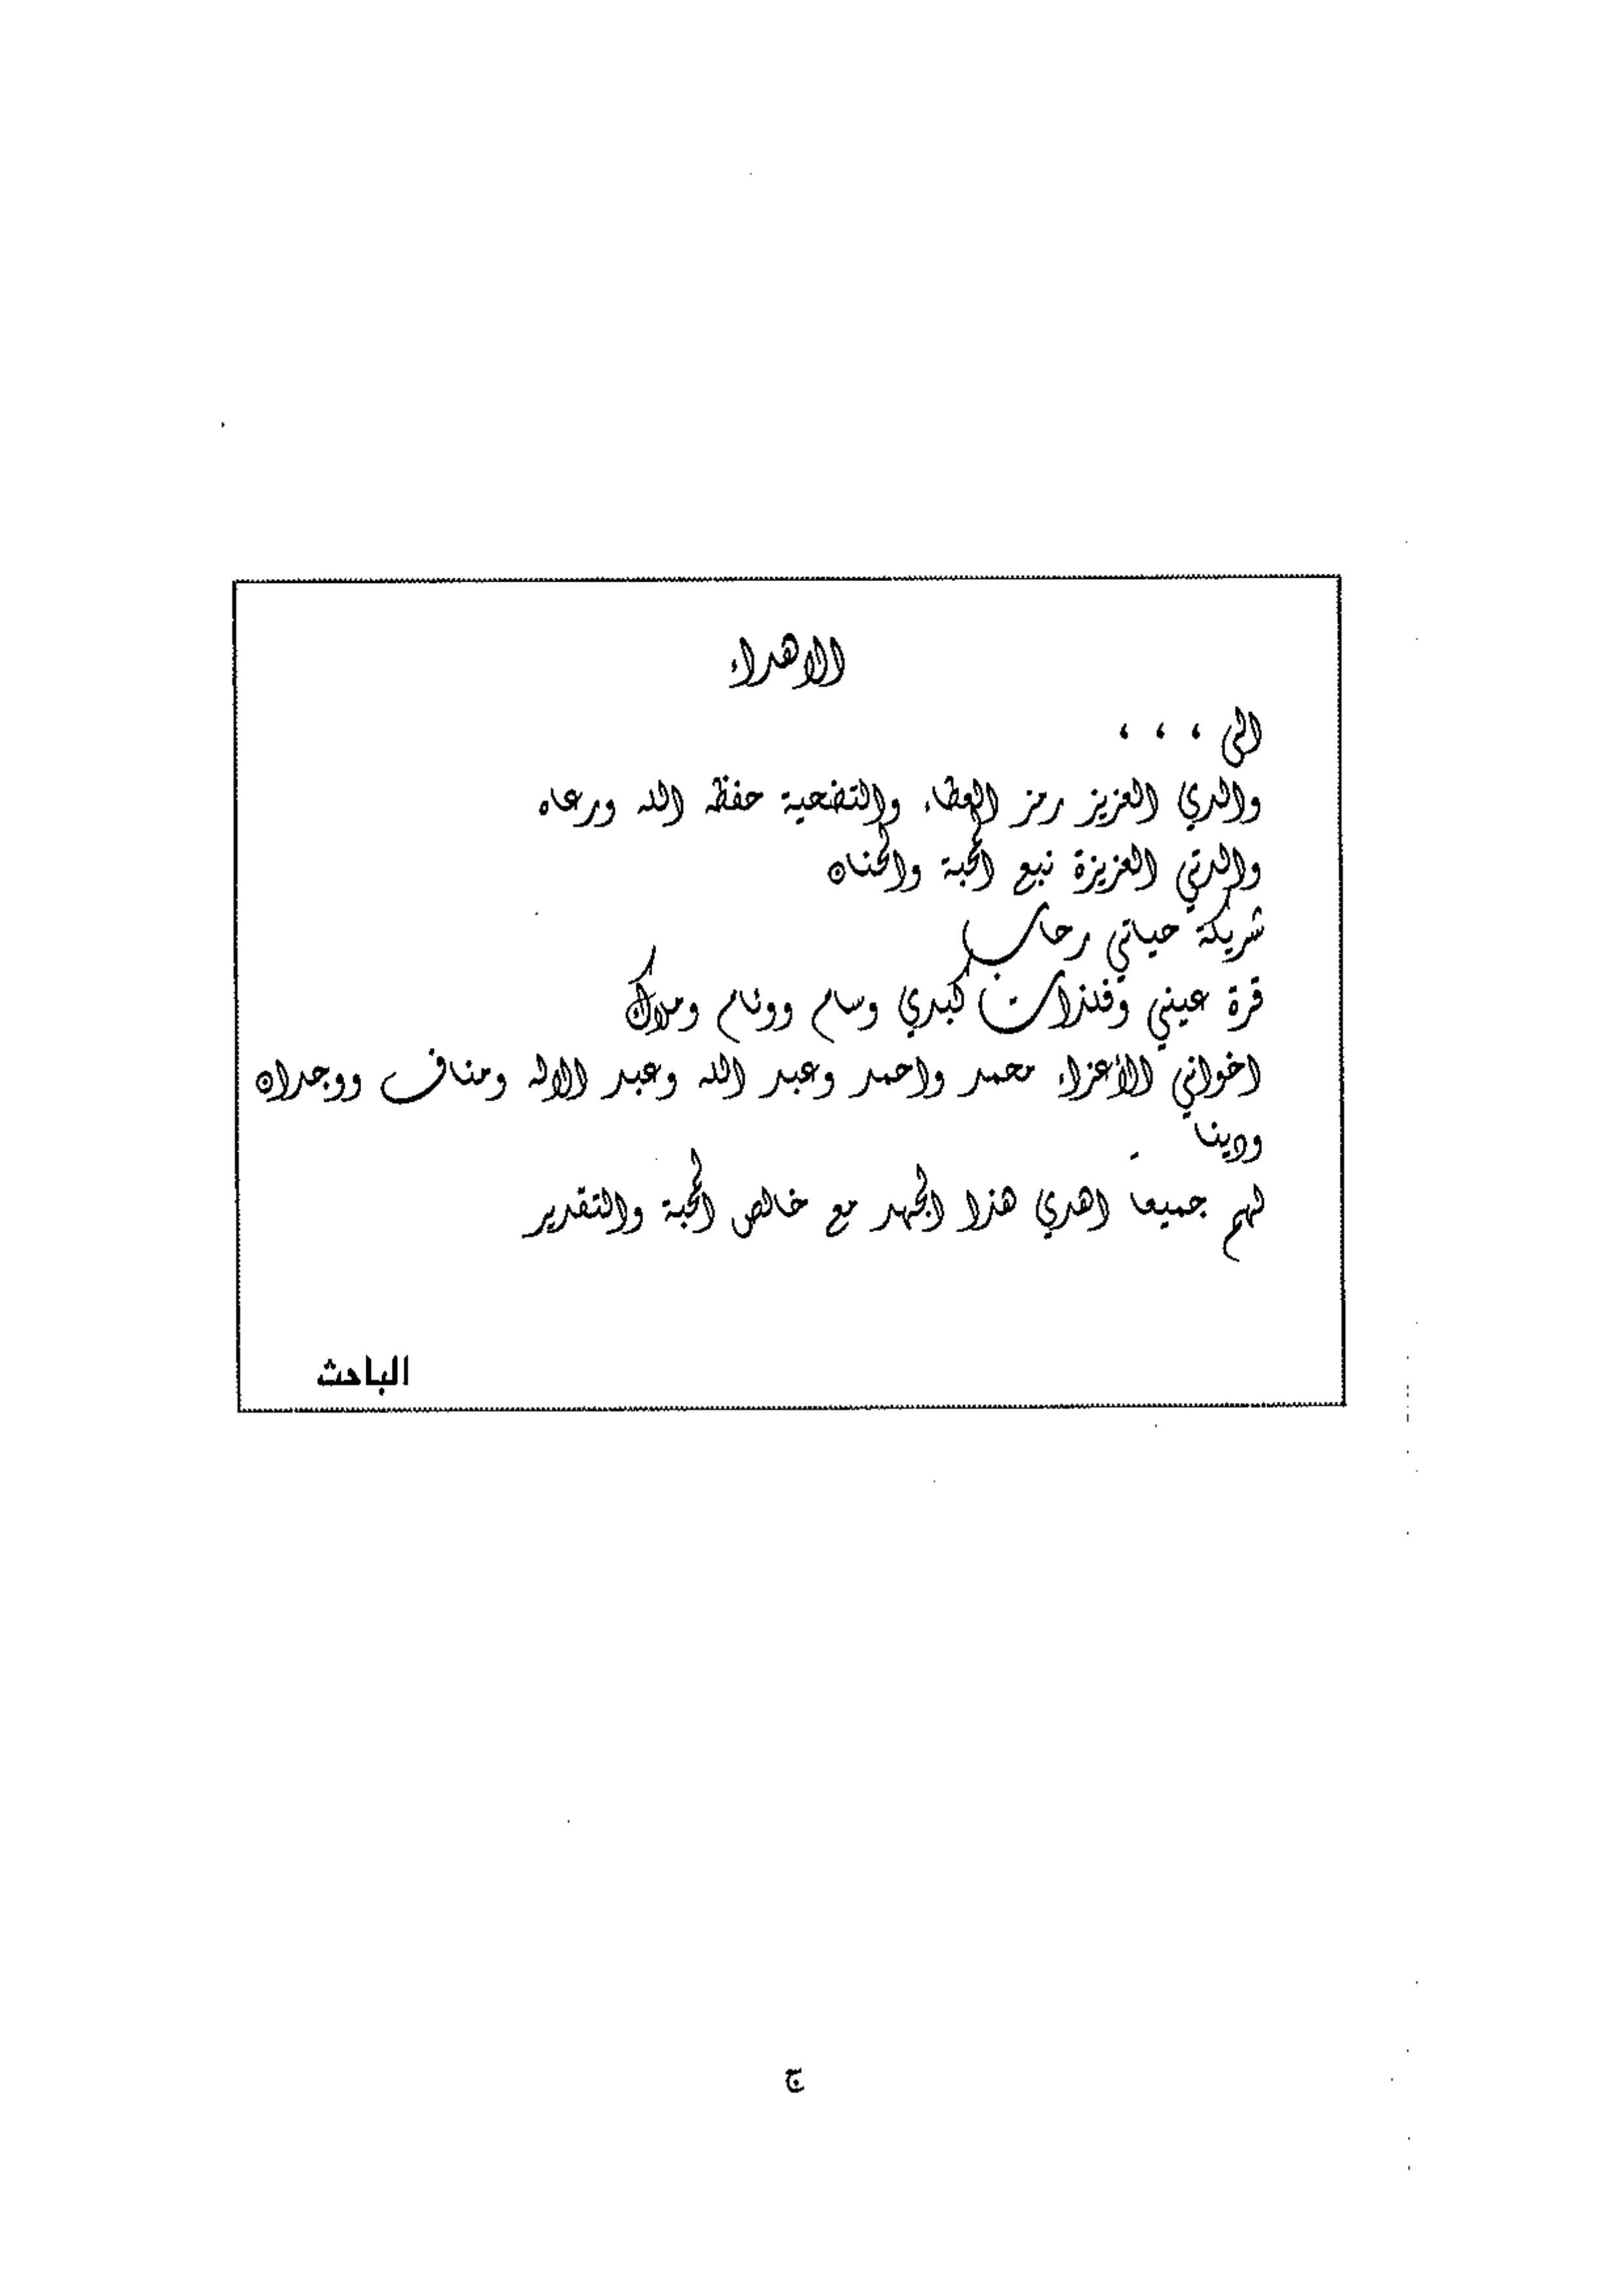 الاهداء
الى ، ، ،
والدي العزيز رمز العطاء والتضحية حفظه الله ورعاه
والدتي العزيزة نبع المحبة والحنان
شريكة حياتي رحاب
قرة عيني وفلذات كبدي وسام ووئام وملاك
اخواني الأعزاء محمد واحمد وعبد الله وعبد الاله ومناف ووجدان
ودينا
لهم جميعا اهدي هذا الجهد مع خالص المحبة والتقدير
الباحث
ج